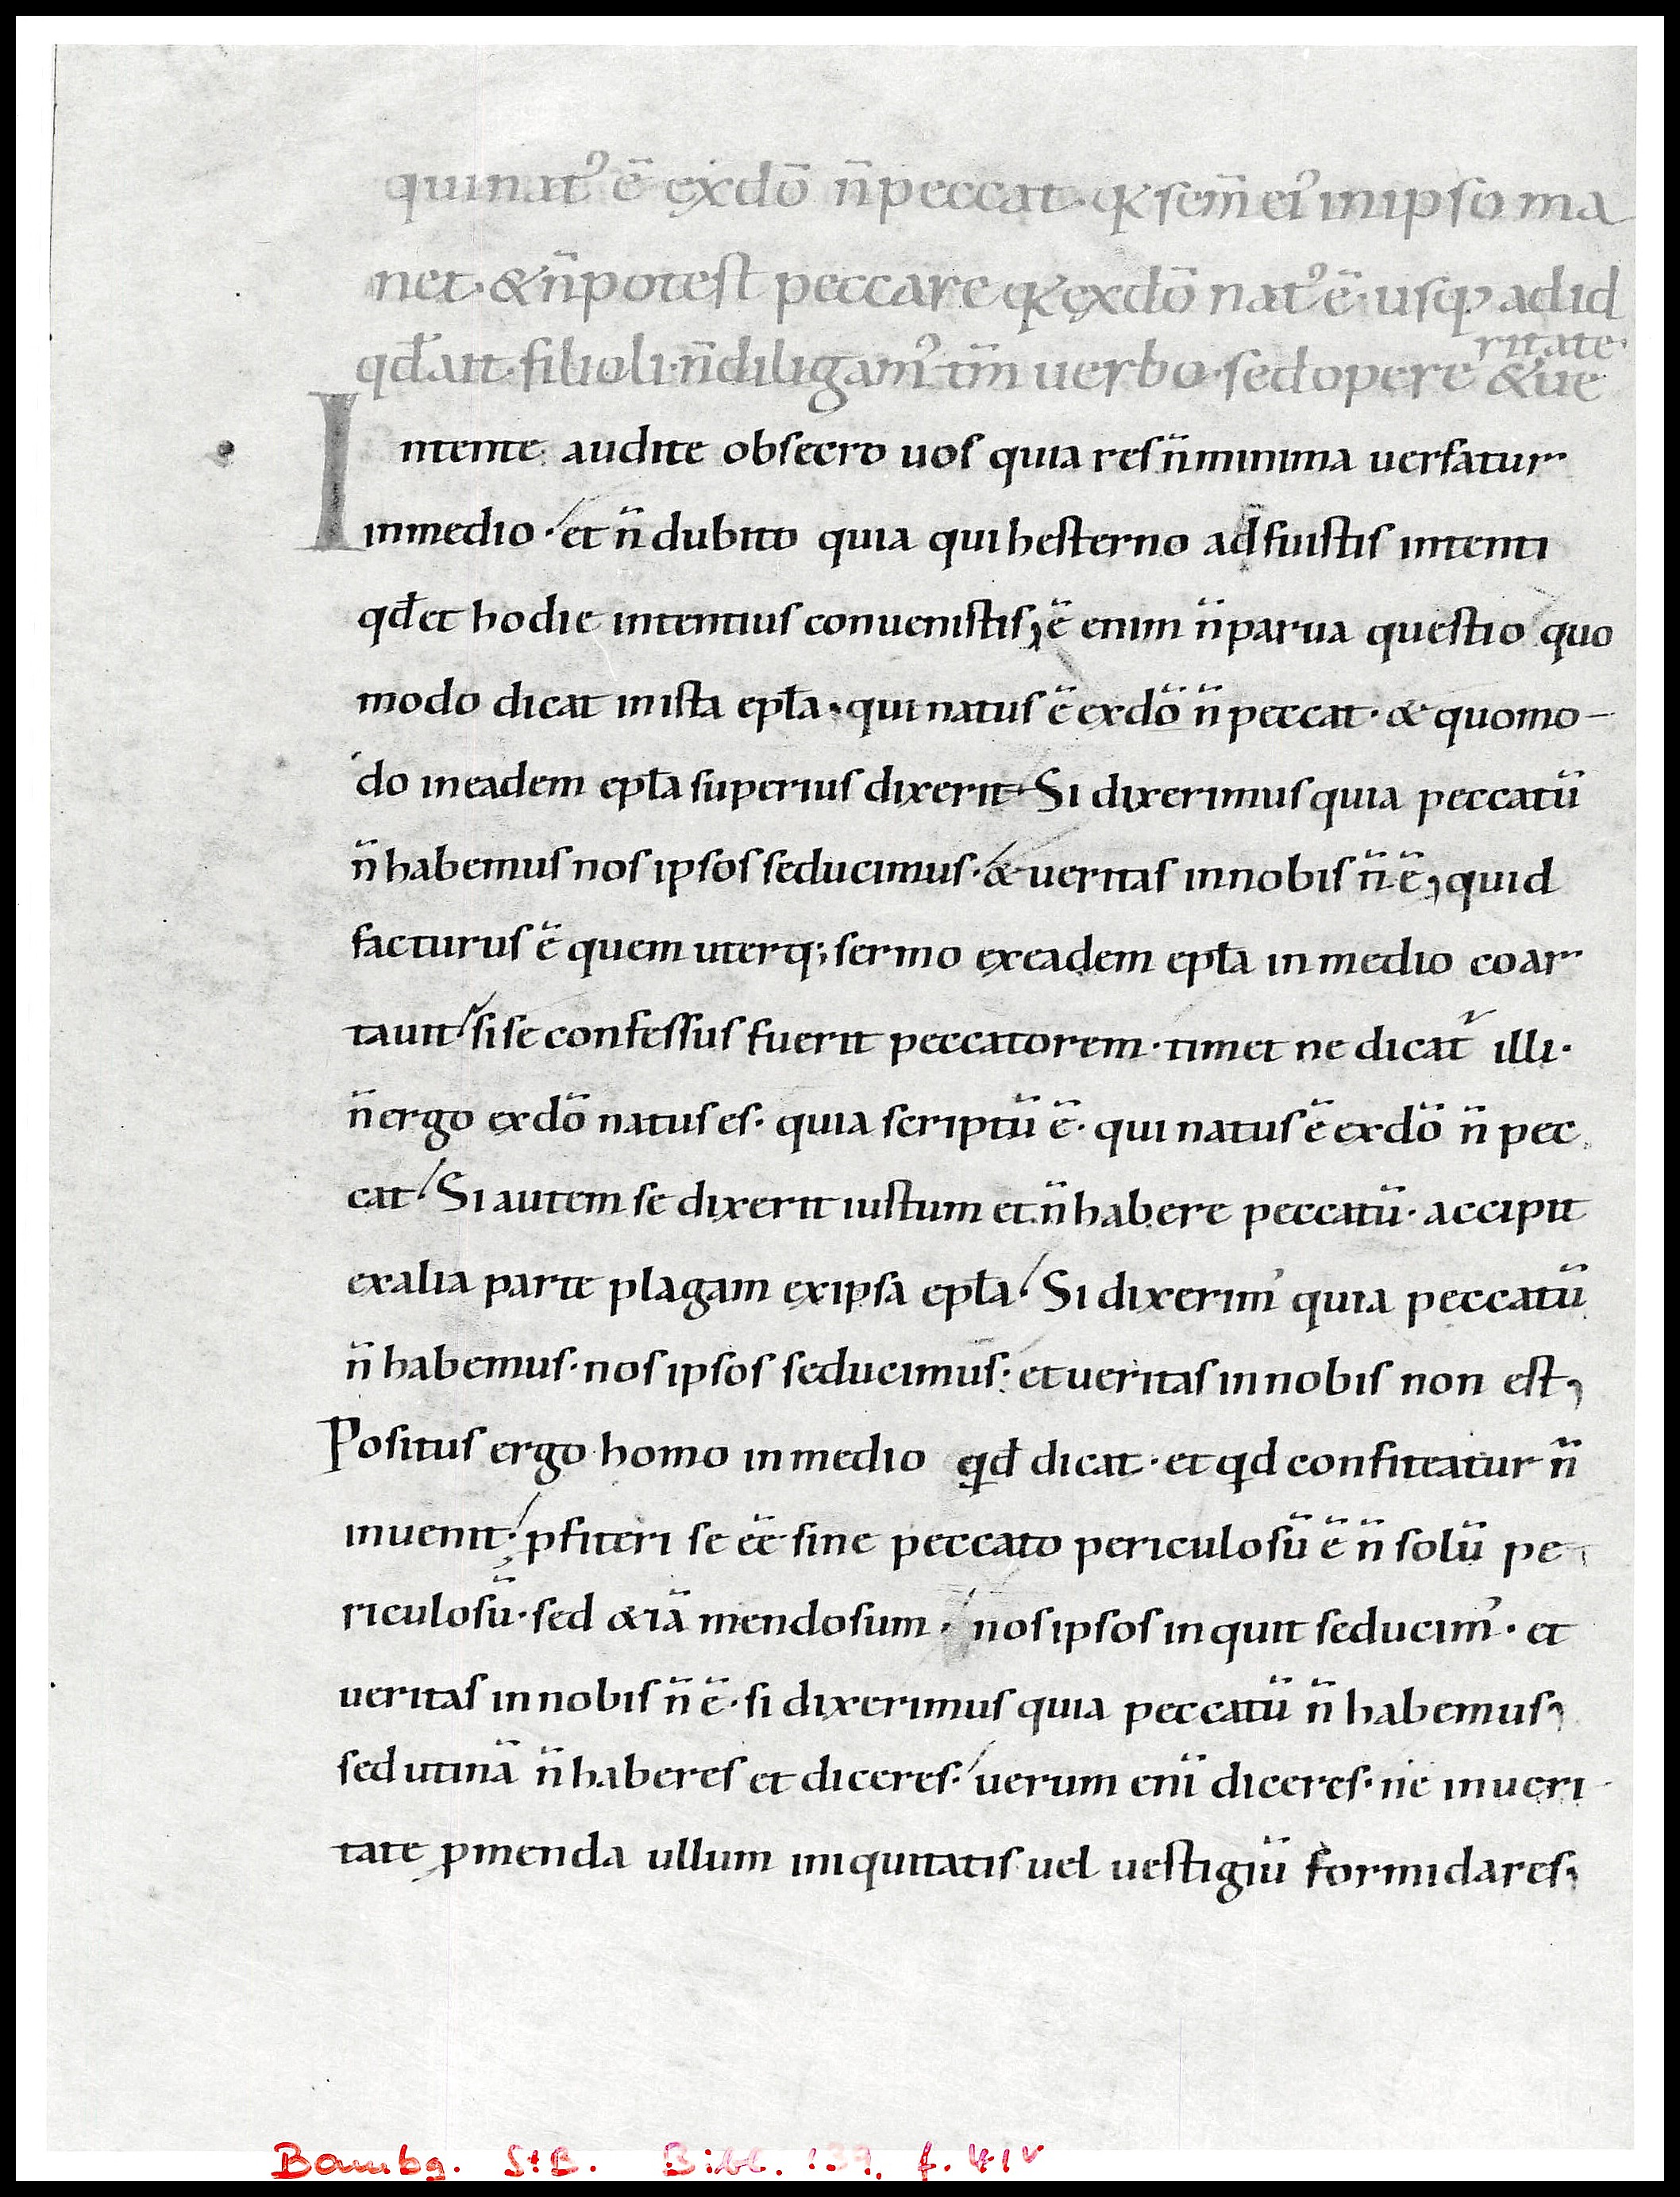 quinatꝰ ē exdō n̄peccat· qꝛ sem̄ eiꝰ inipso ma
net· &n̄potest peccare qꝛ exdō natꝰ ē· usqꝫ adid
qđait· filioli· n̄diligamꝰ tm̄ uerbo· sedopere &ue
ritate·
Intente audite obsecro uos quia res n̄minima uersatur
inmedio· et n̄ dubito quia qui hesterno adfuistis intenti
qđet hodie intentius conuenistis, ē enim n̄parua questio quo
modo dicat inista epła· qui natus ē exdō n̄ peccat· & quomo-
do ineadem epła superius dixerit· Si dixerimus quia peccatū
n̄ habemus nos ipsos seducimus· & ueritas innobis n̄ ē, quid
facturus ē quem uterq; sermo exeadem epła in medio coar
tauit· sise confessus fuerit peccatorem· timet ne dicat᷑ illi·
n̄ ergo exdō natus es· quia scriptū ē· qui natus ē exdō n̄ pec
cat· Si autem se dixerit iustum et n̄ habere peccatū· accipit
exalia parte plagam exipsa epła· Si dixerimꝰ quia peccatū
n̄ habemus· nos ipsos seducimus· et ueritas innobis non est,
Positus ergo homo inmedio qđ dicat· et qd confiteatur n̄
inuenit· ꝓfiteri se eē sine peccato periculosū ē n̄ solū pe
riculosū· sed &iā mendosum· nos ipsos inquit seducimꝰ· et
ueritas innobis n̄ ē· si dixerimus quia peccatū n̄ habemus,
sed utinā n̄ haberes et diceres· uerum eni̅ diceres· ne inueri
tate ꝓmenda ullum iniquitatis uel uestigiū formidares,
Bambg. StB. Bibl. 139, f. 41v